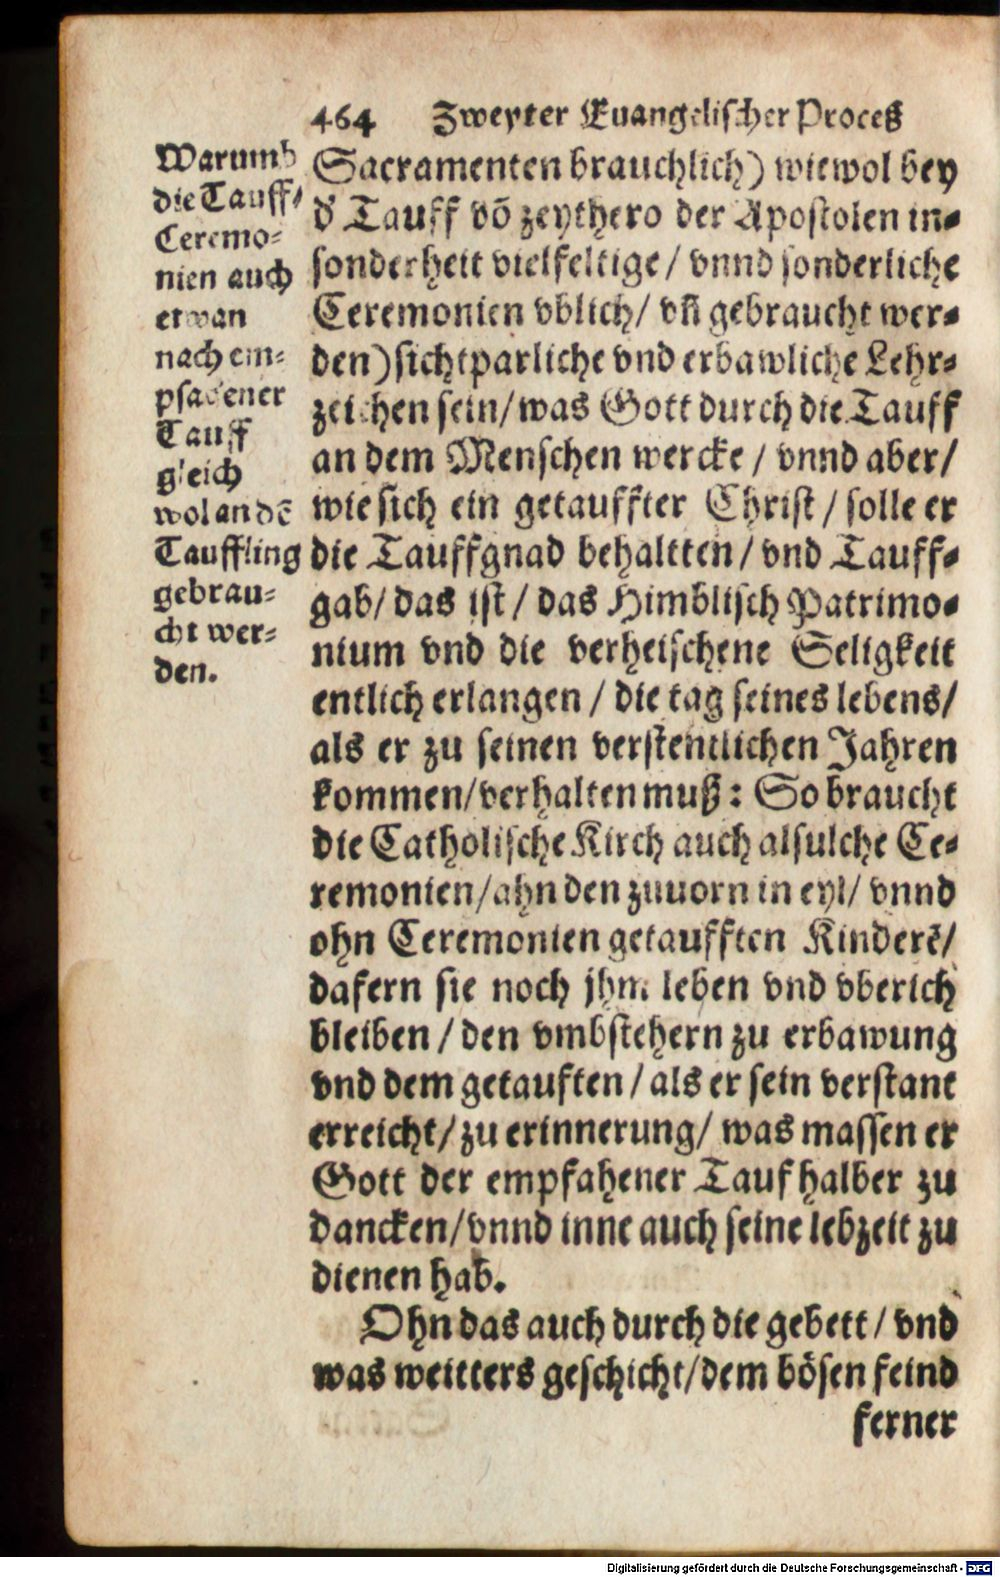 464 Zweyter Euangelischer Proceß
Warumb
die Tauff-
Ceremo-
nien auch
etwan
nach em-
pfagener
Tauff
gleich
wol an dē
Tauffling
gebrau-
cht wer-
den.
Sacramenten brauchlich) wiewol bey
d' Tauff vō zeythero der Apostolen in-
sonderheit vielfeltige / vnnd sonderliche
Ceremonien vblich / vn̄ gebraucht wer-
den) sichtparliche vnd erbawliche Lehr-
zeichen sein / was Gott durch die Tauff
an dem Menschen wercke / vnnd aber /
wie sich ein getauffter Christ / solle er
die Tauffgnad behaltten / vnd Tauff-
gab / das ist / das Himblisch Patrimo-
nium vnd die verheischene Seligkeit
entlich erlangen / die tag seines lebens /
als er zu seinen verstentlichen Jahren
kommen / verhalten muß : So braucht
die Catholische Kirch auch alsulche Ce-
remonien / ahn den zuuorn in eyl / vnnd
ohn Ceremonien getaufften Kinderē /
dafern sie noch jhm leben vnd vberich
bleiben / den vmbstehern zu erbawung
vnd dem getauften / als er sein verstant
erreicht / zu erinnerung / was massen er
Gott der empfahener Tauf halber zu
dancken / vnnd inne auch seine lebzeit zu
dienen hab.
Ohn das auch durch die gebett / vnd
was weitters geschicht / dem bösen feind
ferner
Digitalisierung gefördert durch die Deutsche Forschungsgemeinschaft - DFG